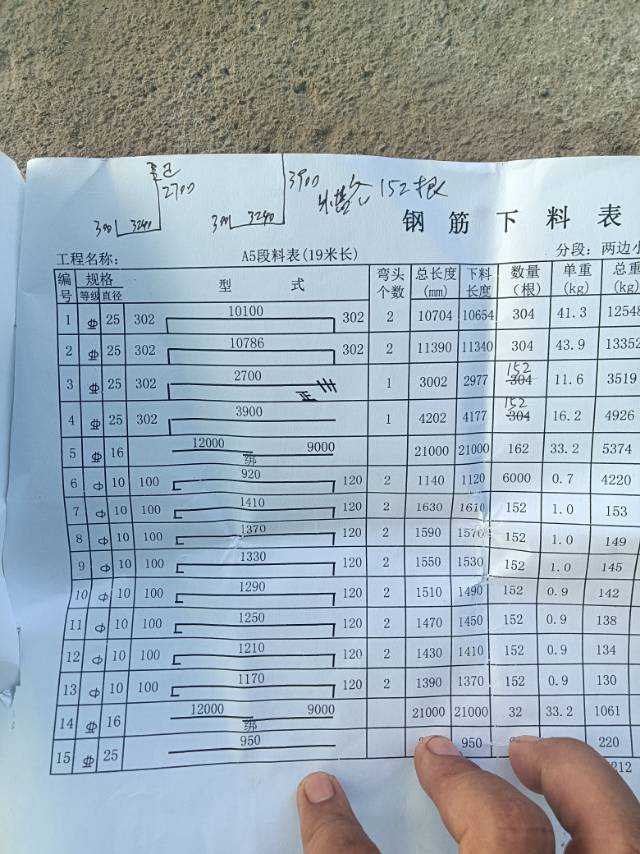 2700
300 3240
3900
300 3240
152根
钢筋下料表
工程名称: A5段料表(19米长) 分段: 两边小
编号 规格 型 式 弯头个数 总长度(mm) 下料长度 数量(根) 单重(kg) 总重(kg)
等级 直径
1 Φ 25 302 10100 302 2 10704 10654 304 41.3 12548
2 Φ 25 302 10786 302 2 11390 11340 304 43.9 13352
3 Φ 25 302 2700 1 3002 2977 152 304 11.6 3519
4 Φ 25 302 3900 1 4202 4177 152 304 16.2 4926
5 Φ 16 12000 绑 9000 21000 21000 162 33.2 5374
6 Φ 10 100 920 120 2 1140 1120 6000 0.7 4220
7 Φ 10 100 1410 120 2 1630 1610 152 1.0 153
8 Φ 10 100 1370 120 2 1590 1570 152 1.0 149
9 Φ 10 100 1330 120 2 1550 1530 152 1.0 145
10 Φ 10 100 1290 120 2 1510 1490 152 0.9 142
11 Φ 10 100 1250 120 2 1470 1450 152 0.9 138
12 Φ 10 100 1210 120 2 1430 1410 152 0.9 134
13 Φ 10 100 1170 120 2 1390 1370 152 0.9 130
14 Φ 16 12000 绑 9000 21000 21000 32 33.2 1061
15 Φ 25 950 950 220
212